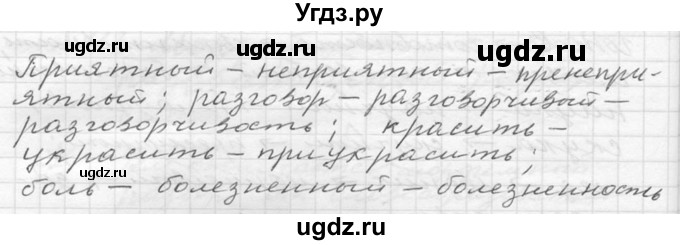 Угдз.ру
ugdz.ru ugdz.ru
Приятный – неприятный – пренепри-
ятный; разговор – разговорчивый –
разговорчивость; красить –
украсить – приукрасить;
боль – болезненный – болезненность
ugdz.ru ugdz.ru
ugdz.ru
ugdz.ru